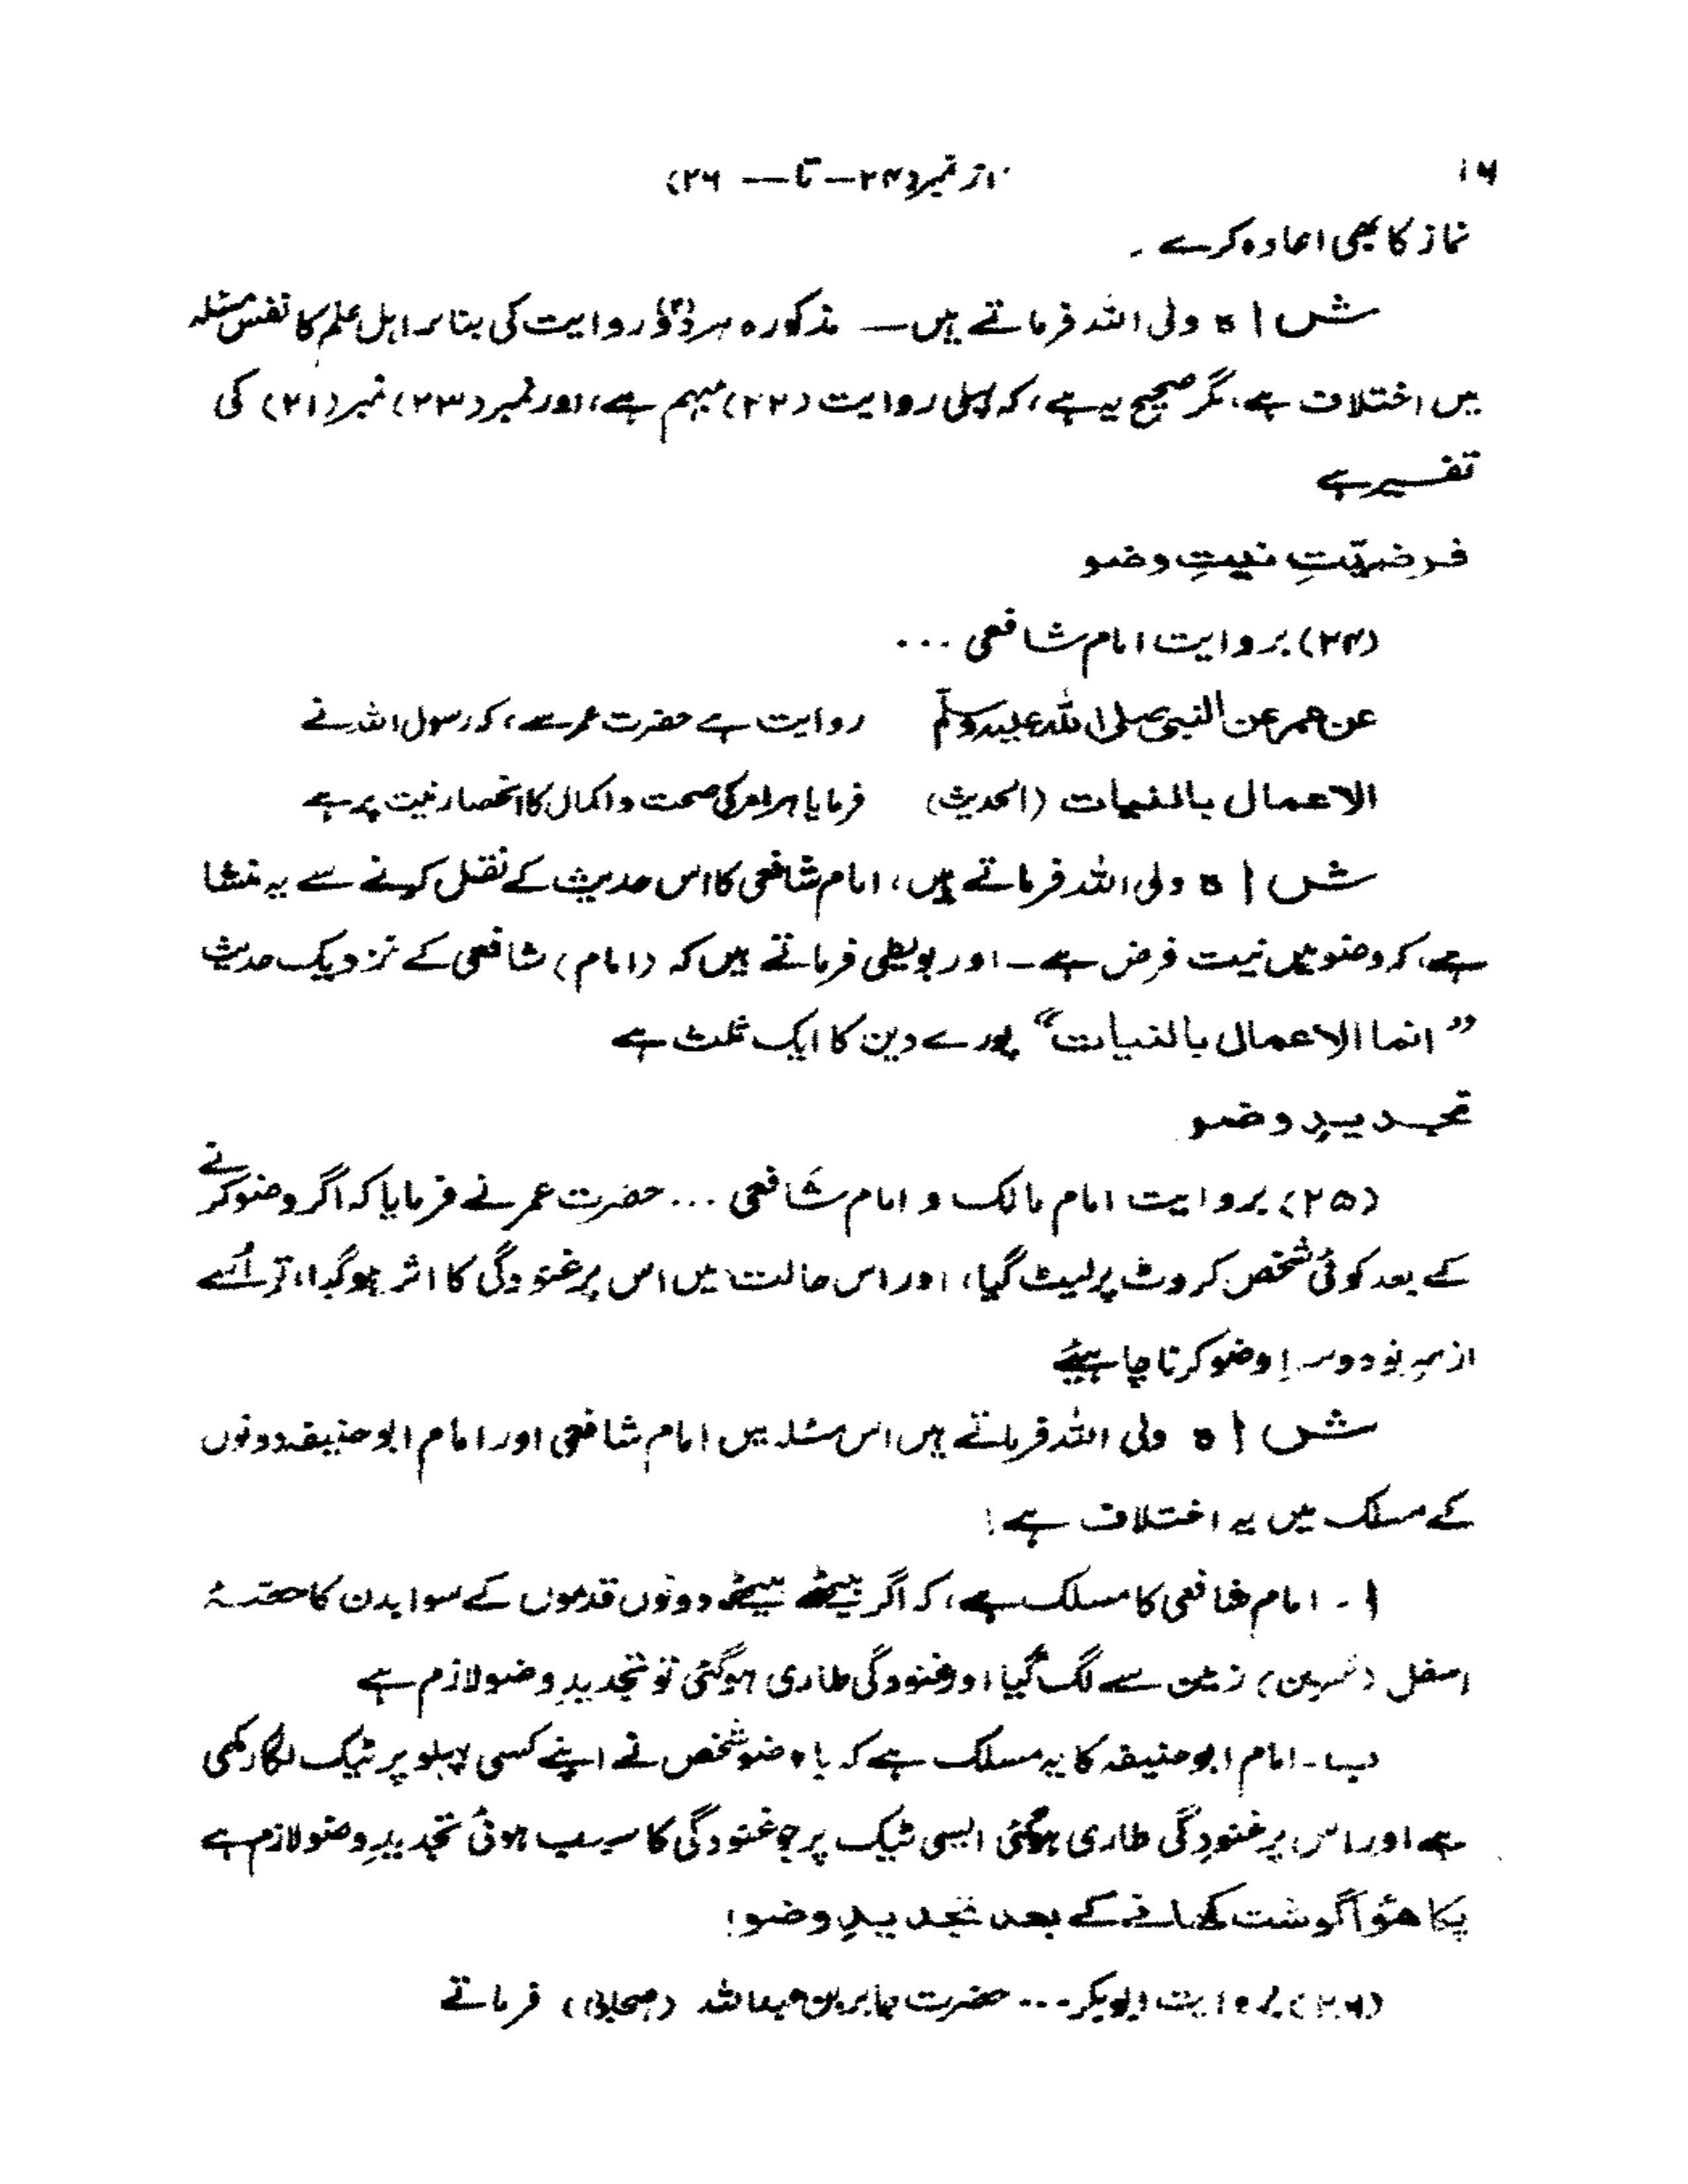 ۱۶
از نمبر (۲۴ — تا — ۲۶)
نماز کا بھی اعادہ کرے ۔
شاہ ولی اللہ فرماتے ہیں — مذکورہ ہر دو روایت کی بنا پر اہل علم کا نفس مسئلہ
میں اختلاف ہے، مگر صحیح یہ ہے، کہ پہلی روایت (۲۲) مبہم ہے، اور نمبر (۲۳) نمبر (۲۱) کی
تفسیر ہے
فرضیّتِ نیتِ وضو
(۲۴) بروایت امام شافعی ...
عن عمر عن النبی صلی اللہ علیہ وسلم روایت ہے حضرت عمر سے، کہ رسول اللہ نے
الاعمال بالنیات (الحدیث) فرمایا ہر امر کی صحت و اکمال کا انحصار نیت پر ہے
شاہ ولی اللہ فرماتے ہیں، امام شافعی کا اس حدیث کے نقل کرنے سے یہ منشا
ہے، کہ وضو میں نیت فرض ہے ۔ اور بویطی فرماتے ہیں کہ (امام) شافعی کے نزدیک حدیث
”انما الاعمال بالنیات“ پورے دین کا ایک ثلث ہے
تجدیدِ وضو
(۲۵) بروایت امام مالک و امام شافعی ... حضرت عمر نے فرمایا کہ اگر وضو کرنے
کے بعد کوئی شخص کروٹ پر لیٹ گیا، اور اس حالت میں اس پر غنودگی کا اثر ہو گیا، تو اُسے
از سرِ نو دوسرا وضو کرنا چاہیئے
شاہ ولی اللہ فرماتے ہیں اس مسئلہ میں امام شافعی اور امام ابو حنیفہ دونوں
کے مسلک میں یہ اختلاف ہے!
ا ۔ امام شافعی کا مسلک ہے، کہ اگر بیٹھے بیٹھے دونوں قدموں کے سوا بدن کا حصۂ
اسفل (سُرین) زمین سے لگ گیا اور غنودگی طاری ہوگئی تو تجدیدِ وضو لازم ہے
ب ۔ امام ابو حنیفہ کا یہ مسلک ہے کہ با وضو شخص نے اپنے کسی پہلو پر ٹیک لگا رکھی
ہے اور اس پر غنودگی طاری ہوگئی ایسی ٹیک پر جو غنودگی کا سبب ہوئی تجدیدِ وضو لازم ہے
پکا ہؤا گوشت کھانے کے بعد تجدیدِ وضو!
(۲۶) بروایت ابوبکر ... حضرت جابر بن عبداللہ (صحابی) فرماتے